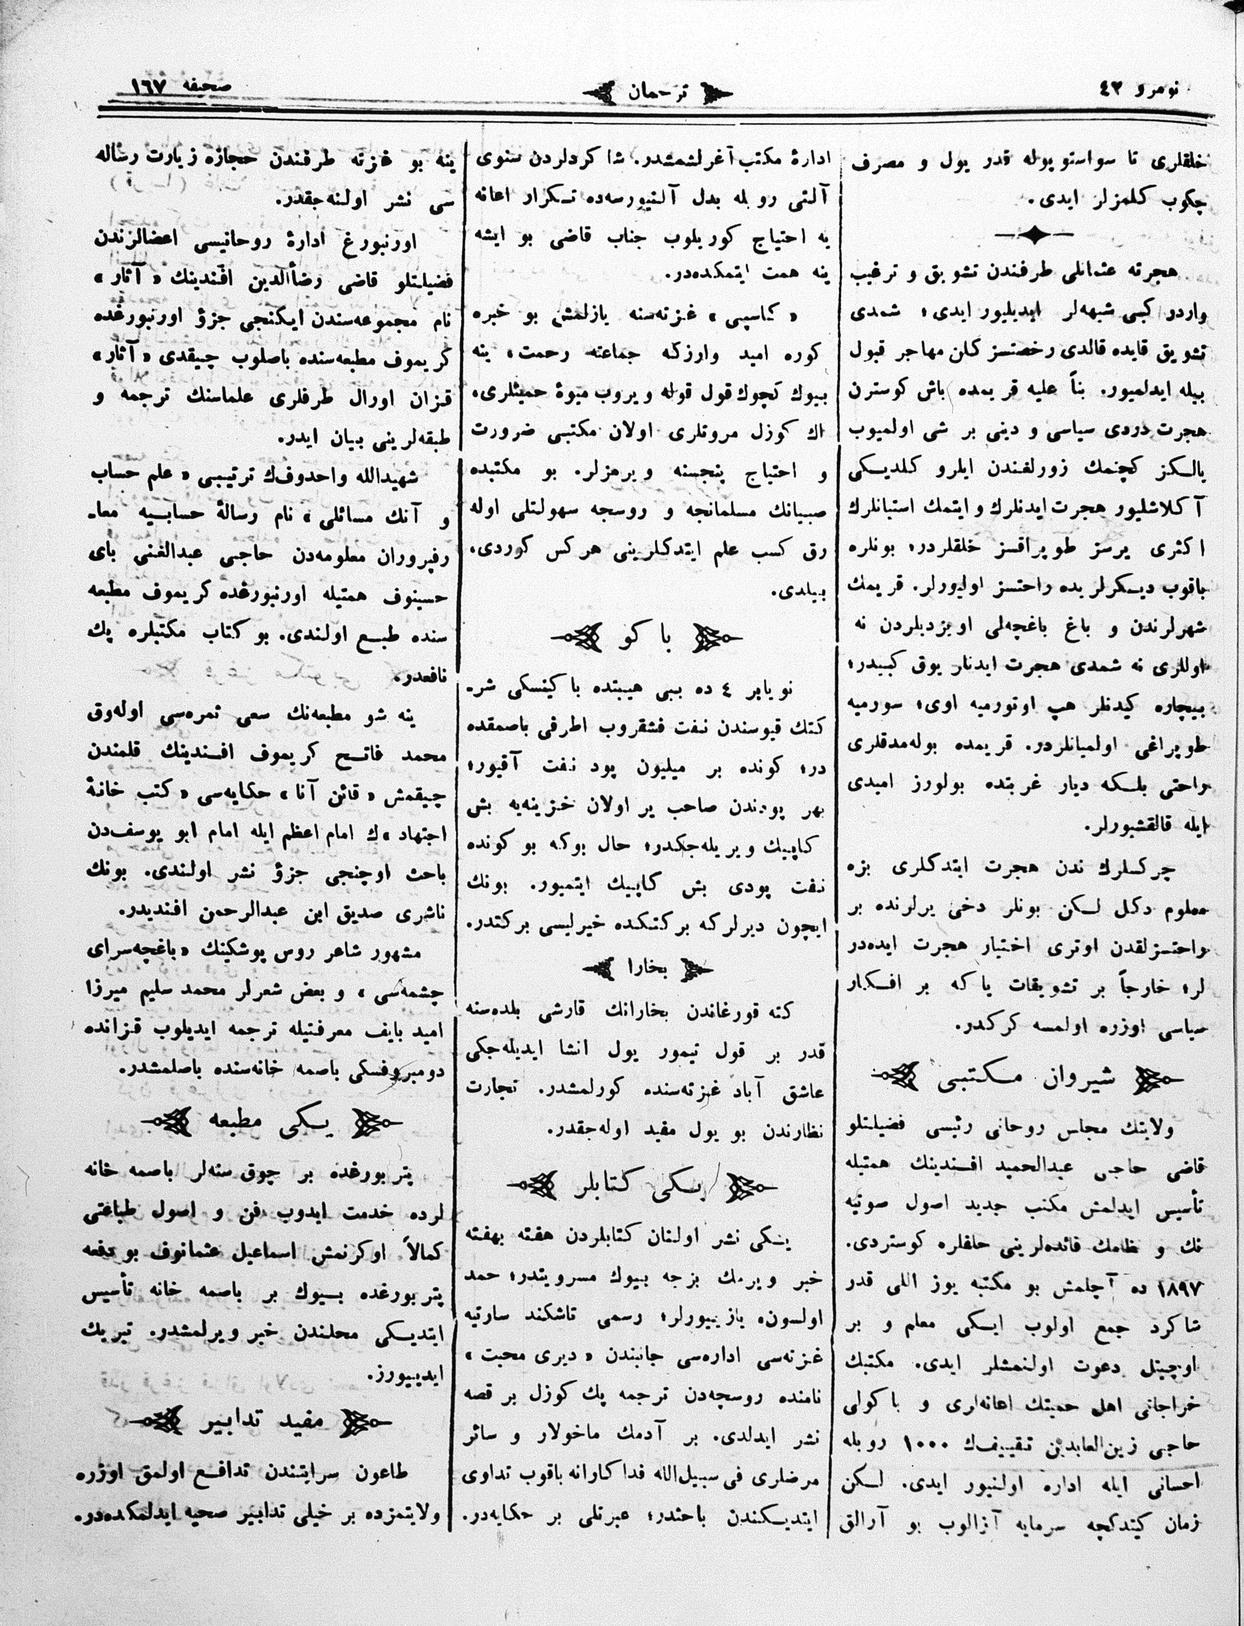 نومرو ٤٣
ترجمان
صحیفه ١٦٧
خلقلری تا سواستوپوله قدر یول و مصرف
چکوب کلمزلر ایدی.
هجرته عثمانلی طرفندن تشویق و ترغیب
واردر کبی شبهه‌لر ایدیلیور ایدی؛ شمدی
تشویق قایده قالدی رخصتسز کلن مهاجر قبول
بیله ایدلمیور. بناً علیه قریمده باش کوسترن
هجرت دردی سیاسی و دینی بر شی اولمیوب
یالکز کچنمك زورلغندن ایلرو کلدیکی
آکلاشلیور هجرت ایدنلرك و ایتمك استیانلرك
اکثری یرسز طوپراقسز خلقلردر؛ بونلره
باقوب دیکرلریده راحتسز اولیورلر. قریمك
شهرلرندن و باغ باغچه‌لی اویزدیلردن نه
اوللری نه شمدی هجرت ایدنلر یوق کبیدر؛
بیچاره کیدنلر هپ اوتورمیه اوی؛ سورمیه
طوپراغی اولمیانلردر. قریمده بوله‌مدقلری
راحتی بلکه دیار غربتده بولورز امیدی
ایله قالقشیورلر.
چرکسلرك ندن هجرت ایتدکلری بزه
معلوم دکل لکن بونلر دخی یرلرنده بر
راحتسزلقدن اوتری اختیار هجرت ایده‌در
لر؛ خارجاً بر تشویقات یا که بر افکار
سیاسی اوزره اولمسه کرکدر.
شیروان مکتبی
ولایتك مجلس روحانی رئیسی فضیلتلو
قاضی حاجی عبدالحمید افندینك همتیله
تأسیس ایدلمش مکتب جدید اصول صوتیه
نك و نظامك فائده‌لرینی خلقلره کوستردی.
١٨٩٧ ده آچلمش بو مکتبه یوز اللی قدر
شاکرد جمع اولوب ایکی معلم و بر
اوچیتل دعوت اولنمشلر ایدی. مکتبك
خراجاتی اهل حمیتك اعانه‌لری و باکولی
حاجی زین‌العابدین تقییفك ١٠٠٠ روبله
احسانی ایله اداره اولنیور ایدی. لکن
زمان کیتدکچه سرمایه آزالوب بو آرالق
ادارهٔ مکتب آغرلشمشدر. شاکردلردن سنوی
آلتی روبله بدل آلنیورسه‌ده تکرار اعانه
یه احتیاج کوریلوب جناب قاضی بو ایشه
ینه همت ایتمکده‌در.
« کاسپی » غزته‌سنه یازلمش بو خبره
کوره امید واردرکه جماعته رحمت؛ ینه
بیوك کچوك قول قوله ویروب میوهٔ حمیتلری،
اك کوزل مروتلری اولان مکتبی ضرورت
و احتیاج پنجسنه ویرمزلر. بو مکتبده
صبیانك مسلمانجه و روسجه سهولتلی اوله
رق کسب علم ایتدکلرینی هرکس کوردی،
بیلدی.
باکو
نویابر ٤ ده بیبی هیبتده باکینسکی شر-
کتك قیوسندن نفت فشقروب اطرفی باصمقده
در؛ کونده بر میلیون پود نفت آقیور؛
بهر پودندن صاحب یر اولان خزینه‌یه بش
کاپیك ویریله‌جکدر؛ حال بوکه بو کونده
نفت پودی بش کاپیك ایتمیور. بونك
ایچون دیرلرکه برکتکده خیرلیسی برکتدر.
بخارا
کته قورغاندن بخارانك قارشی بلده‌سنه
قدر بر قول تیمور یول انشا ایدیله‌جکی
عاشق آباد غزته‌سنده کورلمشدر. تجارت
نظارندن بو یول مفید اوله‌جقدر.
یکی کتابلر
ینکی نشر اولنان کتابلردن هفته بهفته
خبر ویرمك بزجه بیوك مسرویتدر؛ حمد
اولسون، یازییورلر؛ رسمی تاشکند سارتیه
غزته‌سی اداره‌سی جانبندن « دیری محبت »
نامنده روسچه‌دن ترجمه پك کوزل بر قصه
نشر ایدلدی. بر آدمك ماخولار و سائر
مرضلری فی سبیل‌الله فداکارانه باقوب تداوی
ایتدیکندن باحثدر؛ عبرتلی بر حکایه‌در.
ینه بو غزته طرفندن حجازه زیارت رساله
سی نشر اولنه‌جقدر.
اورنبورغ ادارهٔ روحانیسی اعضالرندن
فضیلتلو قاضی رضأالدین افندینك « آثار »
نام مجموعه‌سندن ایکنجی جزؤ اورنبورغده
کریموف مطبعه‌سنده باصلوب چیقدی « آثار »
قزان اورال طرفلری علماسنك ترجمه و
طبقه‌لرینی بیان ایدر.
شهیدالله واحدوفك ترتیبی « علم حساب
و آنك مسائلی » نام رسالهٔ حسابیه معا-
رفپروران معلومه‌دن حاجی عبدالغنی بای
حسینوف همتیله اورنبورغده کریموف مطبعه
سنده طبع اولندی. بو کتاب مکتبلره پك
نافعدر.
ینه شو مطبعه‌نك سعی ثمره‌سی اوله‌رق
محمد فاتح کریموف افندینك قلمندن
چیقمش « قائن آنا » حکایه‌سی « کتب خانهٔ
اجتهاد » ك امام اعظم ایله امام ابو یوسف‌دن
باحث اوچنجی جزؤ نشر اولندی. بونك
ناشری صدیق ابن عبدالرحمن افندیدر.
مشهور شاعر روس پوشکینك « باغچه‌سرای
چشمه‌سی » و بعض شعرلر محمد سلیم میرزا
امید بایف معرفتیله ترجمه ایدیلوب قزانده
دومبروفسکی باصمه خانه‌سنده باصلمشدر.
یکی مطبعه
پتربورغده بر چوق سنه‌لر باصمه خانه
لرده خدمت ایدوب فن و اصول طباعتی
کمالاً اوکرنمش اسماعیل عثمانوف بو دفعه
پتربورغده بیوك بر باصمه خانه تأسیس
ایتدیکی محلندن خبر ویرلمشدر. تبریك
ایدییورز.
مفید تدابیر
طاعون سرایتندن تدافع اولمق اوزره
ولایتمزده بر خیلی تدابیر صحیه ایدلمکده‌در.